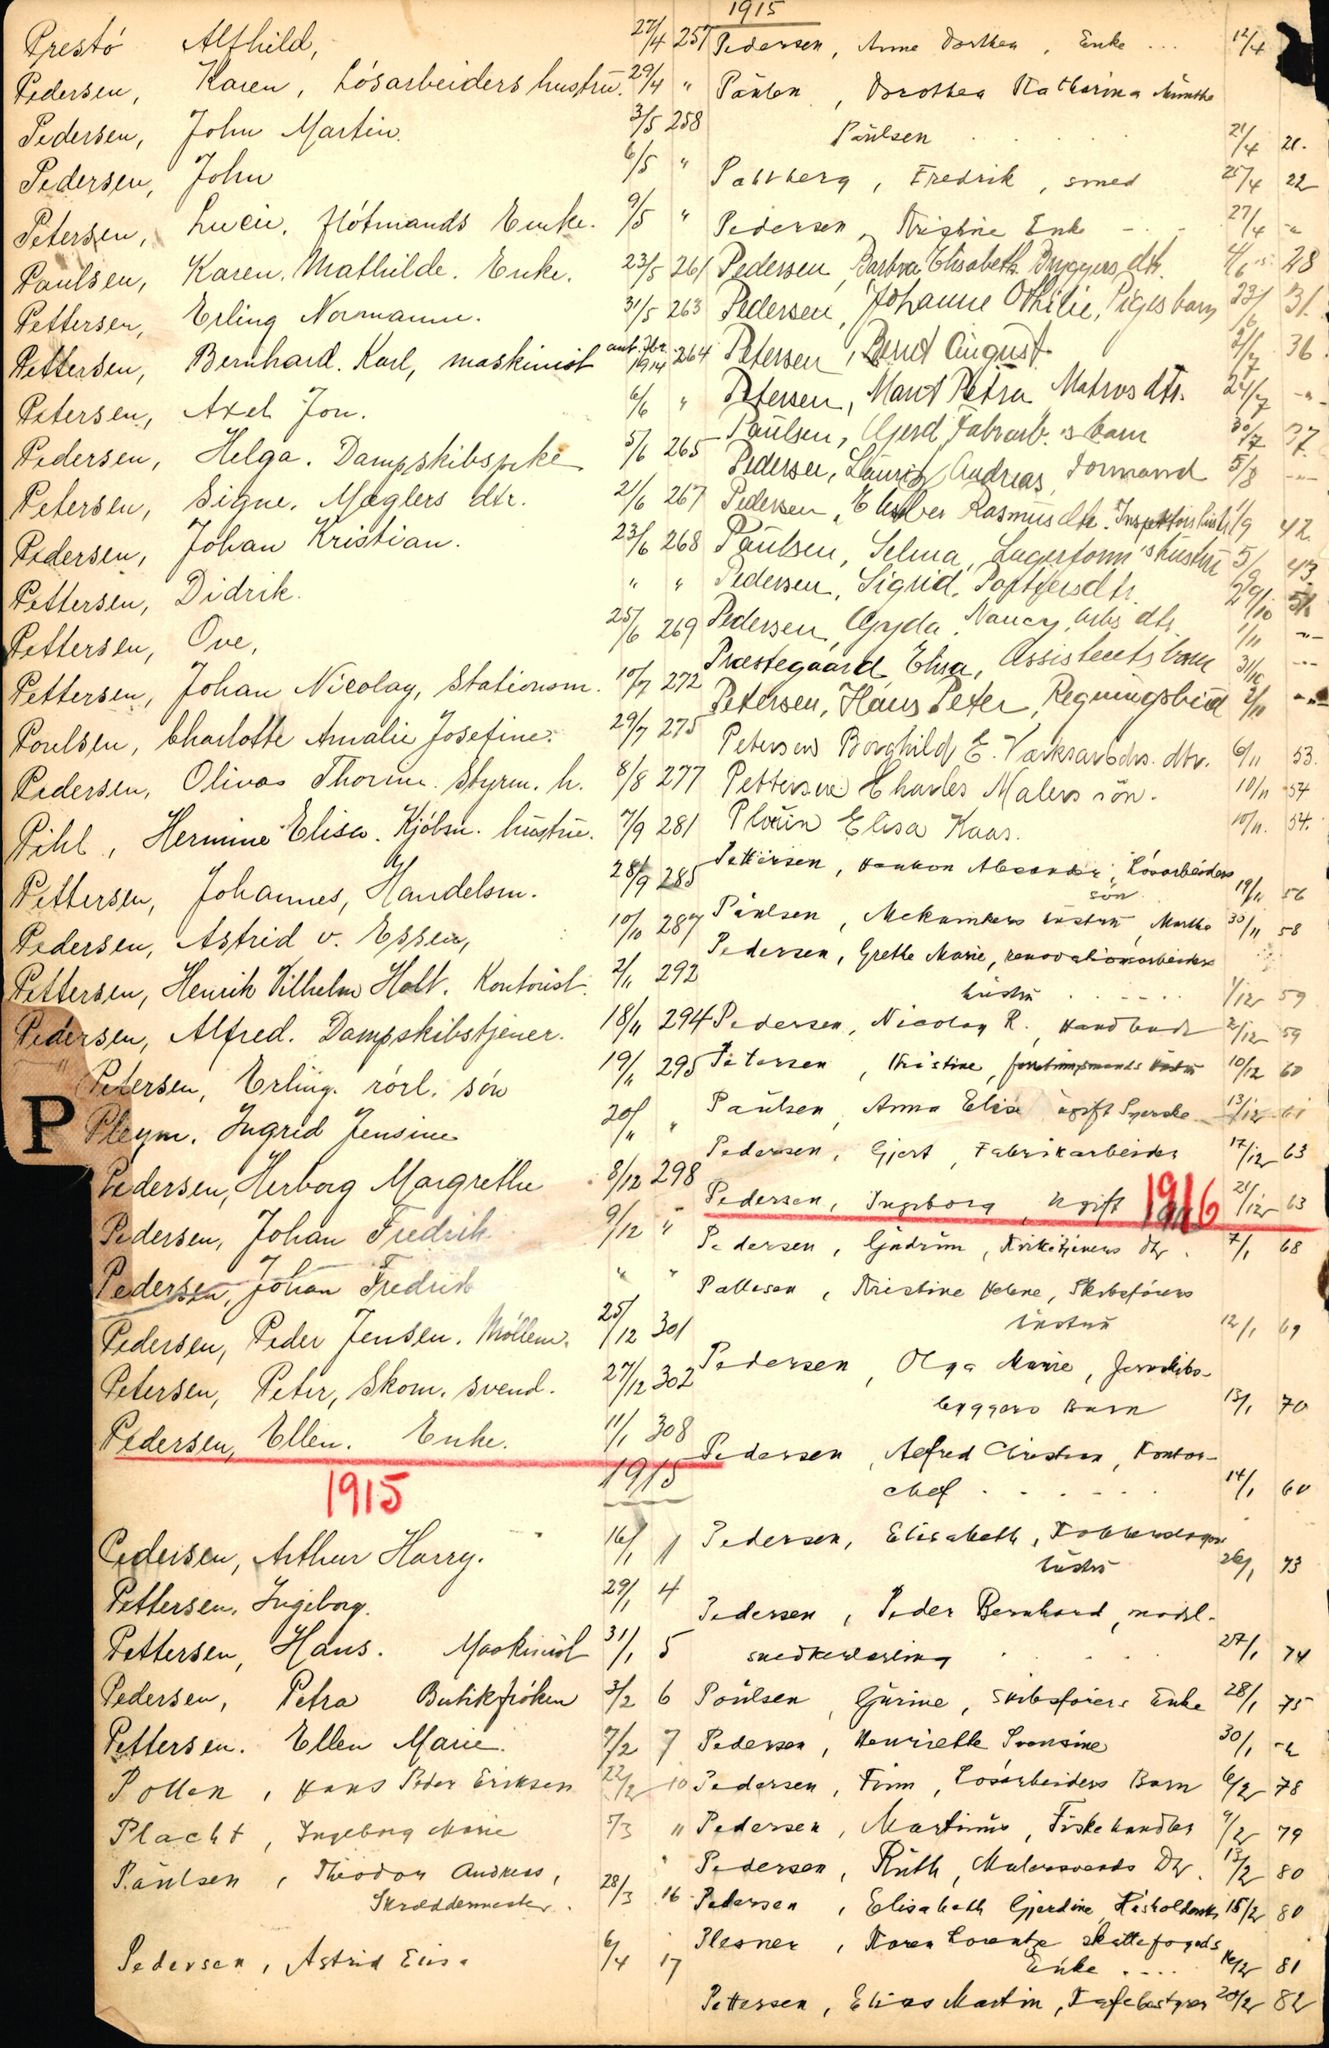 Prestó Alfhild, 27/4 257
Pedersen, Karen, Lósarbeiders hustru. 29/4 "
Pedersen, John Martin. 3/5 258
Pedersen, John 6/5 "
Petersen, Lucie, flótmands Enke. 9/5 "
Paulsen, Karen Mathilde. Enke. 23/5 261
Pettersen, Erling Normann. 31/5 263
Pettersen, Bernhard Karl, maskinist 1914 264
Petersen, Axel Jon. 6/6 "
Pedersen, Helga. Dampskibspike 5/6 265
Petersen, Signe. Mæglers dtr. 21/6 267
Pedersen, Johan Kristian. 23/6 268
Pettersen, Didrik. " "
Pettersen, Ove, 25/6 269
Pettersen, Johan Nicolay, Stationsm. 10/7 272
Poulsen, Charlotte Amalie Josefine. 29/7 275
Pedersen, Olivas Thorine. Styrm. h. 8/8 277
Pihl, Hermine Elisa. Kjóbm. hustru. 7/9 281
Pettersen, Johannes, Handelsm. 28/9 285
Pedersen, Astrid v. Essen, 10/10 287
Pettersen, Henrik Vilhelm Holt. Kontorist. 2/11 292
Pedersen, Alfred. Dampskibstjener. 18/11 294
Petersen, Erling. rórl. són 19/11 295
P
Pleym. Ingrid Jensine 20/11 "
Pedersen, Herborg Margrethe 8/12 298
Pedersen, Johan Fredrik 9/12 "
Pedersen, Johan Fredrik " "
Pedersen, Peder Jensen. Móllem. 25/12 301
Petersen, Peter, Skom. svend. 27/12 302
Pedersen, Ellen. Enke. 11/1 308
1915 1915
Pedersen, Arthur Harry. 16/1 1
Pettersen, Ingeborg. 29/1 4
Pettersen, Hans. Maskinist 31/1 5
Pedersen, Petra Butikfróken 3/2 6
Pettersen. Ellen Marie. 7/2 7
Pollen, Hans Peder Eriksen 22/2 10
Placht, Ingeborg Marie 5/3 "
Paulsen, Theodor Andreas,
Skræddermester. 28/3 16
Pedersen, Astrid Elisa 6/4 17
1915
Pedersen, Anne Dorthea, Enke ... 12/4
Paulsen, Dorothea Katharina Munthe
Paulsen 21/4 21.
Pallberg, Fredrik, smed 25/4 22
Pedersen, Kristine Enke 27/4 "
Pedersen, Barbra Elisabeth Bryggers dtr. 4/6 28
Pedersen, Johanne Othilie, Piges barn 23/6 31.
Petersen, Bernt August 2/7 36.
Petersen, Marit Petra Matros dtr. 24/7 -"-
Paulsen, Gjerd Fabrarb.'s barn 30/7 37.
Pedersen, Lauritz Andreas, Formand 5/8 -"-
Pedersen, Rasmusdtr. 1/9 42.
Paulsen, Selma, Lagerform's hustru 5/9 43.
Pedersen, Sigrid. dtr. 29/10 51.
Pedersen, Gyda Nancy, arbs dtr. 1/11 -"-
Præstegaard Elisa, Assistents barn 31/10 -"-
Petersen, Hans Peter, Regningsbud 2/11 -"-
Petersen Borghild E. Værksarbdrs. dtr. 6/11 53.
Pettersen Charles Malers són. 10/11 54
Ploüin Elisa Kaas. 10/11. 54.
Pettersen, Haakon Alexander, Lósarbeiders
són 19/11 56
Paulsen, Mekanikers hustru, Martha 30/11 58
Pedersen, Grethe Marie, renovationsarbeiders
hustru ..... 1/12 59
Pedersen, Nicolay R., Handlende 2/12 59
Petersen, Kristine, hustru 10/12 60
Paulsen, Anna Elise ugift Syerske 13/12 61
Pedersen, Gjert, Fabrikarbeider 17/12 63
Pedersen, Ingeborg, ugift 21/12 63
1916
Pedersen, Gudrun, Dtr. 7/1 68
Pallesen, Kristine Helene, Skibsfórers
hustru 12/1 69
Pedersen, Olga Marie, Jernskibs-
byggers Barn 13/1 70
Pedersen, Alfred Christian, Kontor-
chef ...... 14/1 60
Pedersen, Elisabeth, Kobberslagers
hustru 26/1 73
Pedersen, Peder Bernhard, modl-
snedkerlærling 27/1 74
Poulsen, Gurine, Skibsfórers Enke 28/1 75
Pedersen, Henriette Svensine 30/1 "
Pedersen, Finn, Lósarbeiders Barn 6/2 78
Pedersen, Martinus, Fiskehandler 9/2 79
Pedersen, Ruth, Malersvends Dtr. 13/2 80
Pedersen, Elisabeth Gjerdine, 15/2 80
Plesner, Karen Lorentze skattefogds
Enke .... 16/2 81
Pettersen, Elias Martin, Kafebestyrer 20/2 82